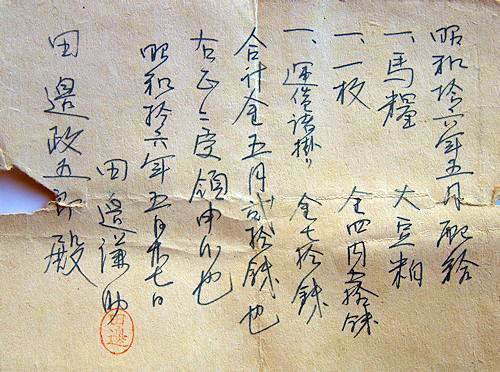 昭和拾六年五月配給
一、馬糧 大豆粕
一、一枚 金四円五拾銭
一、運送諸掛リ 金七拾銭
合計金五円弐拾銭也
右正ニ受領申候也
昭和拾六年五月廿七日
田邉謙助
田邉
田邉政五郎殿